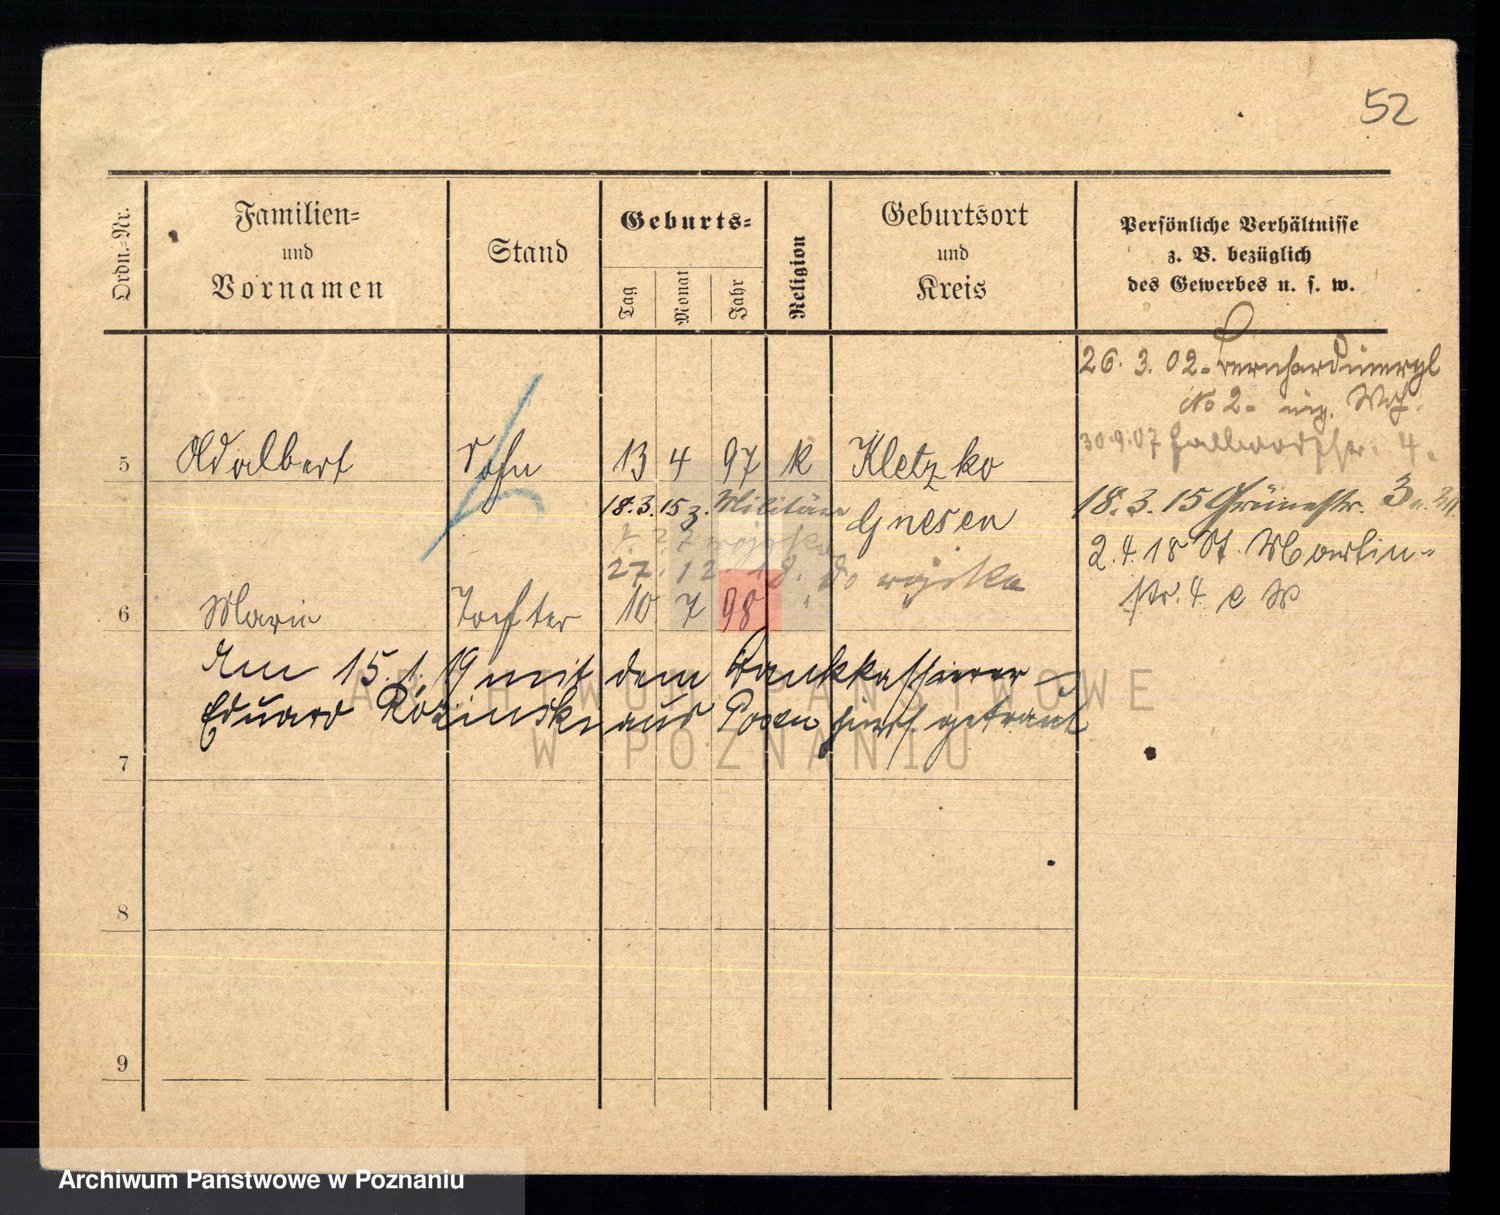 52
Ordn.-Nr.
Familien-
und
Vornamen
Stand
Geburts-
Tag
Monat
Jahr
Religion
Geburtsort
und
Kreis
Persönliche Verhältnisse
z. B. bezüglich
des Gewerbes u. s. w.
26. 3. 02. Bernhardinerpl
No 2.
30.9.07 Hallwordsstr. 4.
5 Adalbert Sohn 13 4 97 K Kletzko
18.3.15 z. Militär Gnesen
18. 3. 15 Grünestr. 3
wojska
27. 12. 18. do wojska
2. 4. 18 St. Martin-
str. 4
6 Marie Tochter 10 7 98
Am 15. 1. 19 mit dem Bankkassierer
Eduard Rózinski aus Posen hier getraut
7
8
9
ARCHIWUM PAŃSTWOWE
W POZNANIU
Archiwum Państwowe w Poznaniu